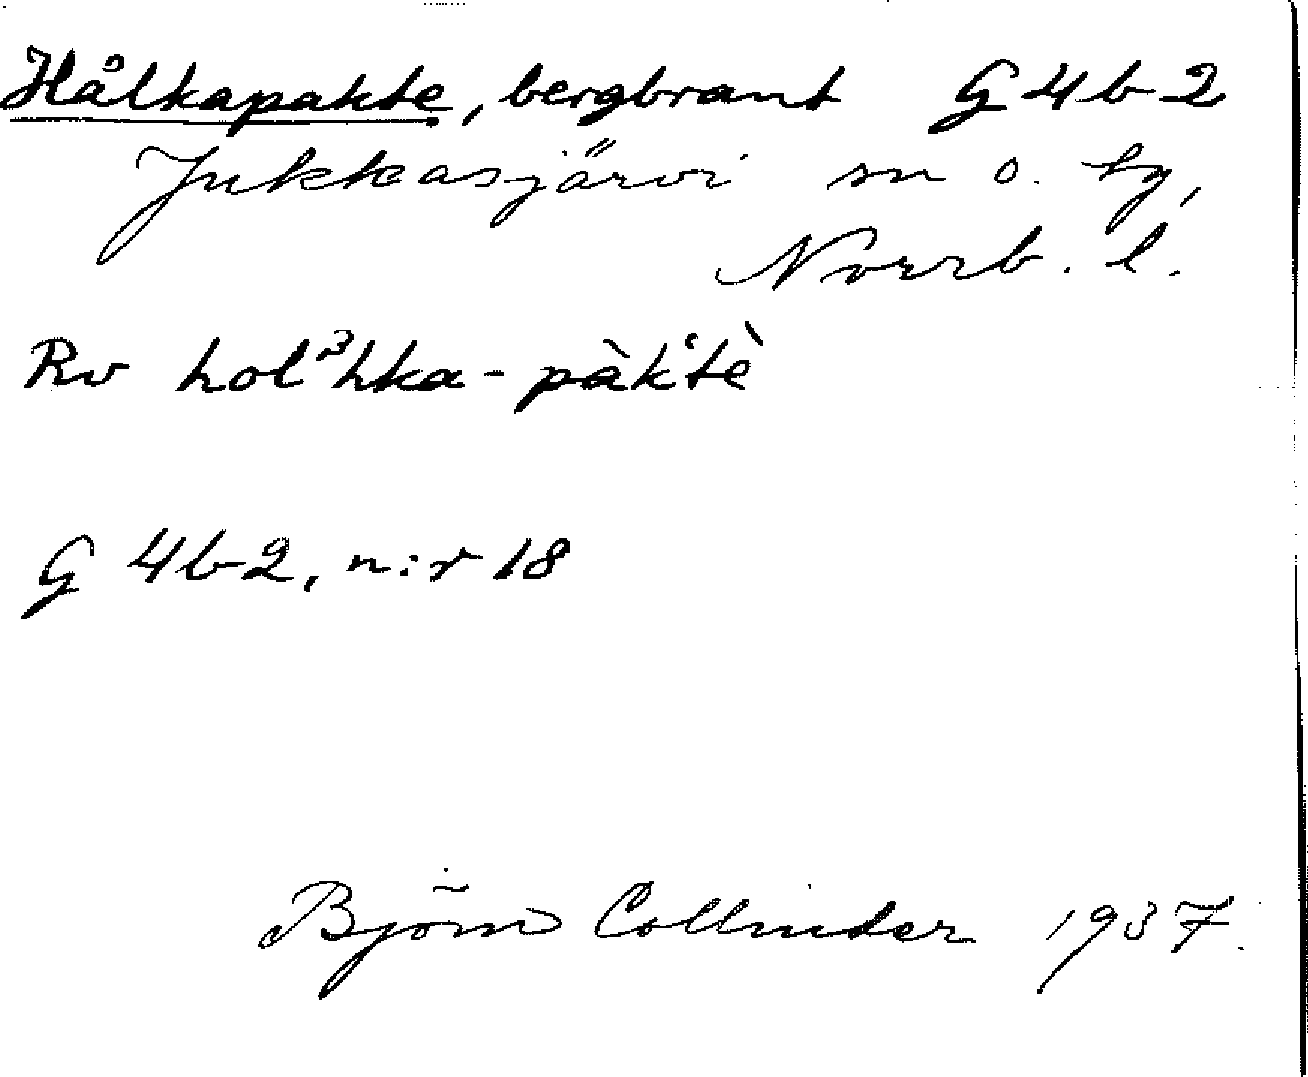 Hålkapakte, bergbrant G 4b-2
Jukkasjärvi sn o. tg,
Norrb. l.
Rv holᵌhka-pàkʻtè
G 4b-2, n:r 18
Björn Collinder 1937.